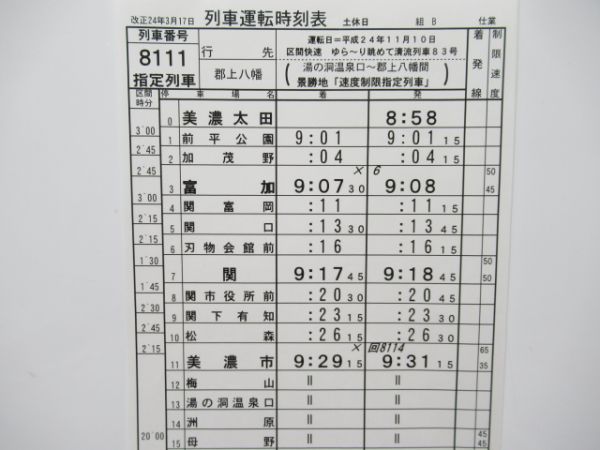 改正24年3月17日 列車運転時刻表 土休日 組 B 仕業
列車番号 行先 運転日=平成24年11月10日 着発線 制限速度
8111 区間快速 ゆら~り眺めて清流列車83号
指定列車 郡上八幡 (湯の洞温泉口~郡上八幡間
景勝地「速度制限指定列車」)
区間時分 停車場名 着 発
0 美濃太田 8:58
3´00
1 前平公園 9:01 9:01 15
2´45
2 加茂野 :04 :04 15
2´45 × 6 50
3 富加 9:07 30 9:08 45
3´00
4 関富岡 :11 :11 15
2´15
5 関口 :13 30 :13 45
2´15
6 刃物会館前 :16 :16 15
1´30 50
7 関 9:17 45 9:18 45 50
1´45
8 関市役所前 :20 30 :20 45
2´30
9 関下有知 :23 15 :23 30
2´45
10 松森 :26 15 :26 30
2´15 × 回8114 65
11 美濃市 9:29 15 9:31 15 35
12 梅山 || ||
13 湯の洞温泉口 || ||
14 洲原 || ||
20´00 45
15 母野 || || 45